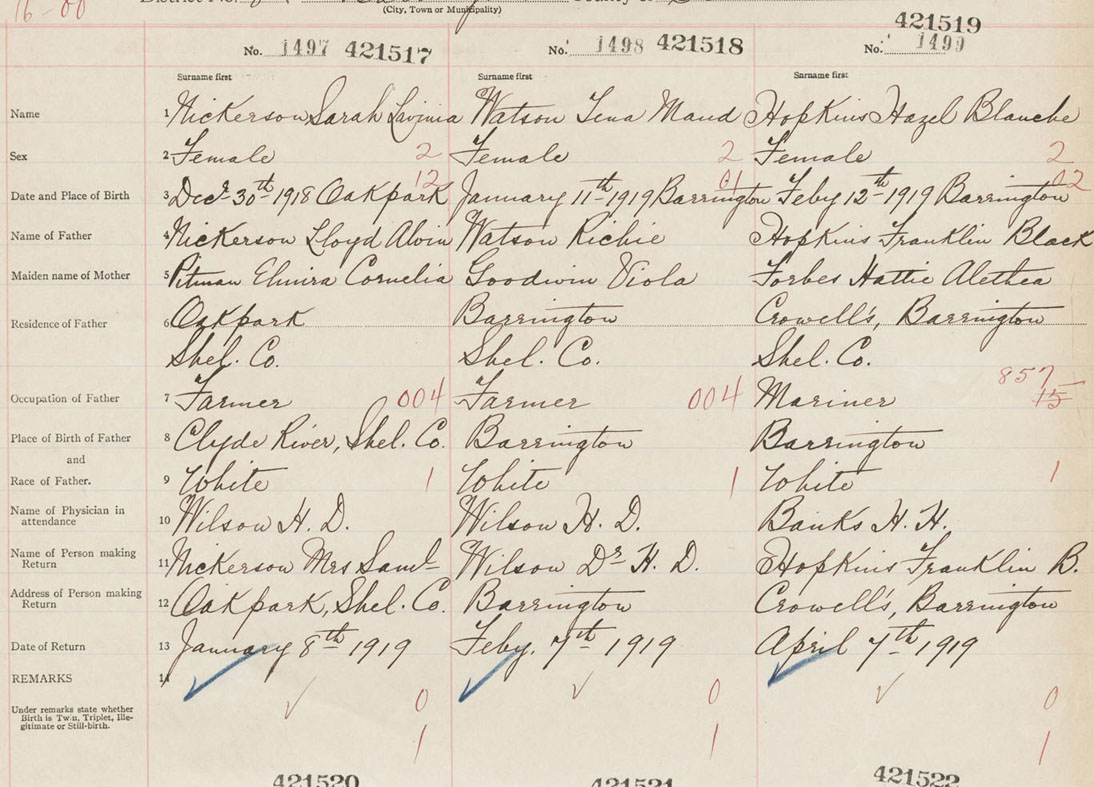 16-00
(City, Town or Municipality)
No. 1497 421517
No. 1498 421518
421519
No. 1499
Surname first
Surname first
Surname first
Name 1 Nickerson Sarah Lavinia Watson Tena Maud Hopkins Hazel Blanche
Sex 2 Female 2 Female 2 Female 2
12 01 02
Date and Place of Birth 3 Decr 30th 1918 Oakpark January 11th 1919 Barrington Feby 12th 1919 Barrington
Name of Father 4 Nickerson Lloyd Alvin Watson Richie Hopkins Franklin Black
Maiden name of Mother 5 Pitman Elmira Cornelia Goodwin Viola Forbes Hattie Alethea
Residence of Father 6 Oakpark Barrington Crowell's, Barrington
Shel. Co. Shel. Co. Shel. Co.
857
Occupation of Father 7 Farmer 004 Farmer 004 Mariner 15
Place of Birth of Father 8 Clyde River, Shel. Co. Barrington Barrington
and
Race of Father. 9 White 1 White 1 White 1
Name of Physician in attendance 10 Wilson H. D. Wilson H. D. Banks H. H.
Name of Person making Return 11 Nickerson Mrs Saml Wilson Dr H. D. Hopkins Franklin B.
Address of Person making Return 12 Oakpark, Shel. Co. Barrington Crowell's, Barrington
Date of Return 13 January 8th 1919 Feby. 7th 1919 April 7th 1919
REMARKS 14
0 0 0
Under remarks state whether
Birth is Twin, Triplet, Ille-
gitimate or Still-birth.
1 1 1
421520 421521 421522